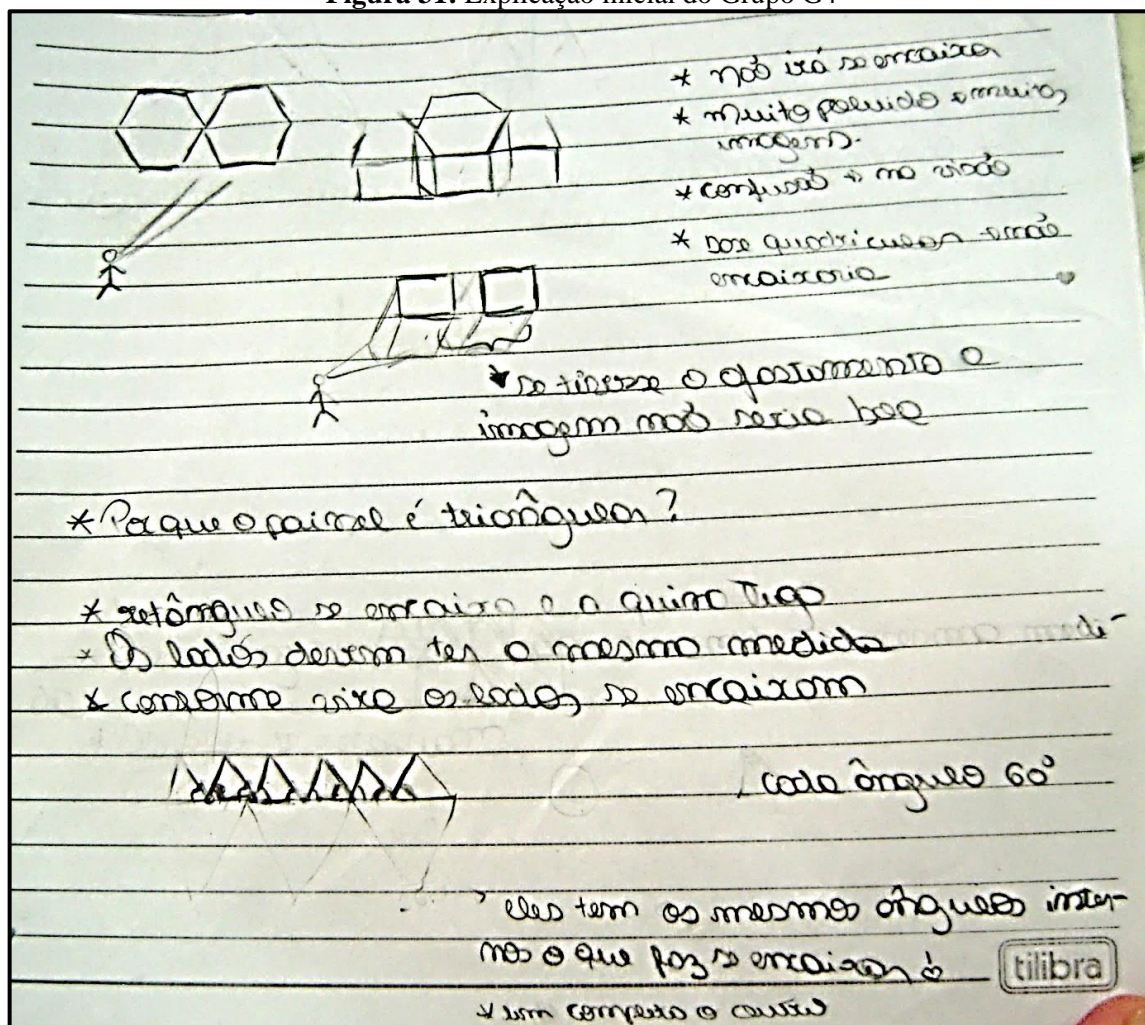 Figura 31: Explicação inicial do Grupo G4
* não irá se encaixar
* muito poluido e muitas
imagens.
* confusão na visão
* base quadricular então
encaixaria
* se tivesse o afastamento a
imagem não seria boa
* Por que o painel é triângular?
* retângulo se encaixa
* Os lados devem ter a mesma medida
* conforme vira os lados se encaixam
cada ângulo 60°
eles tem os mesmos ângulos inter-
nos o que faz se encaixar é
* um completa o outro
tilibra